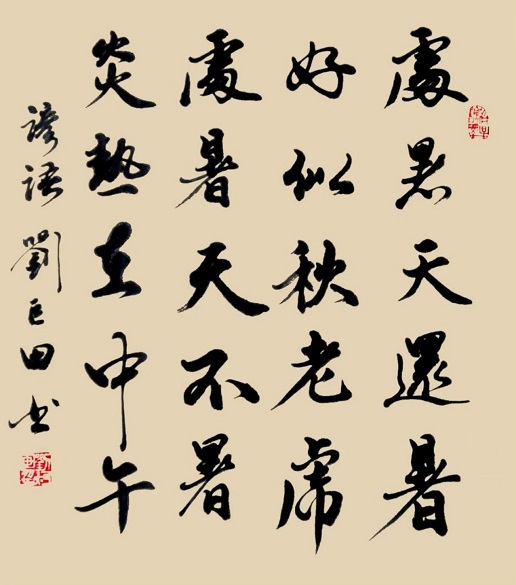 處暑天還暑
好似秋老虎
處暑天不暑
炎熱在中午
諺語 劉巨田书